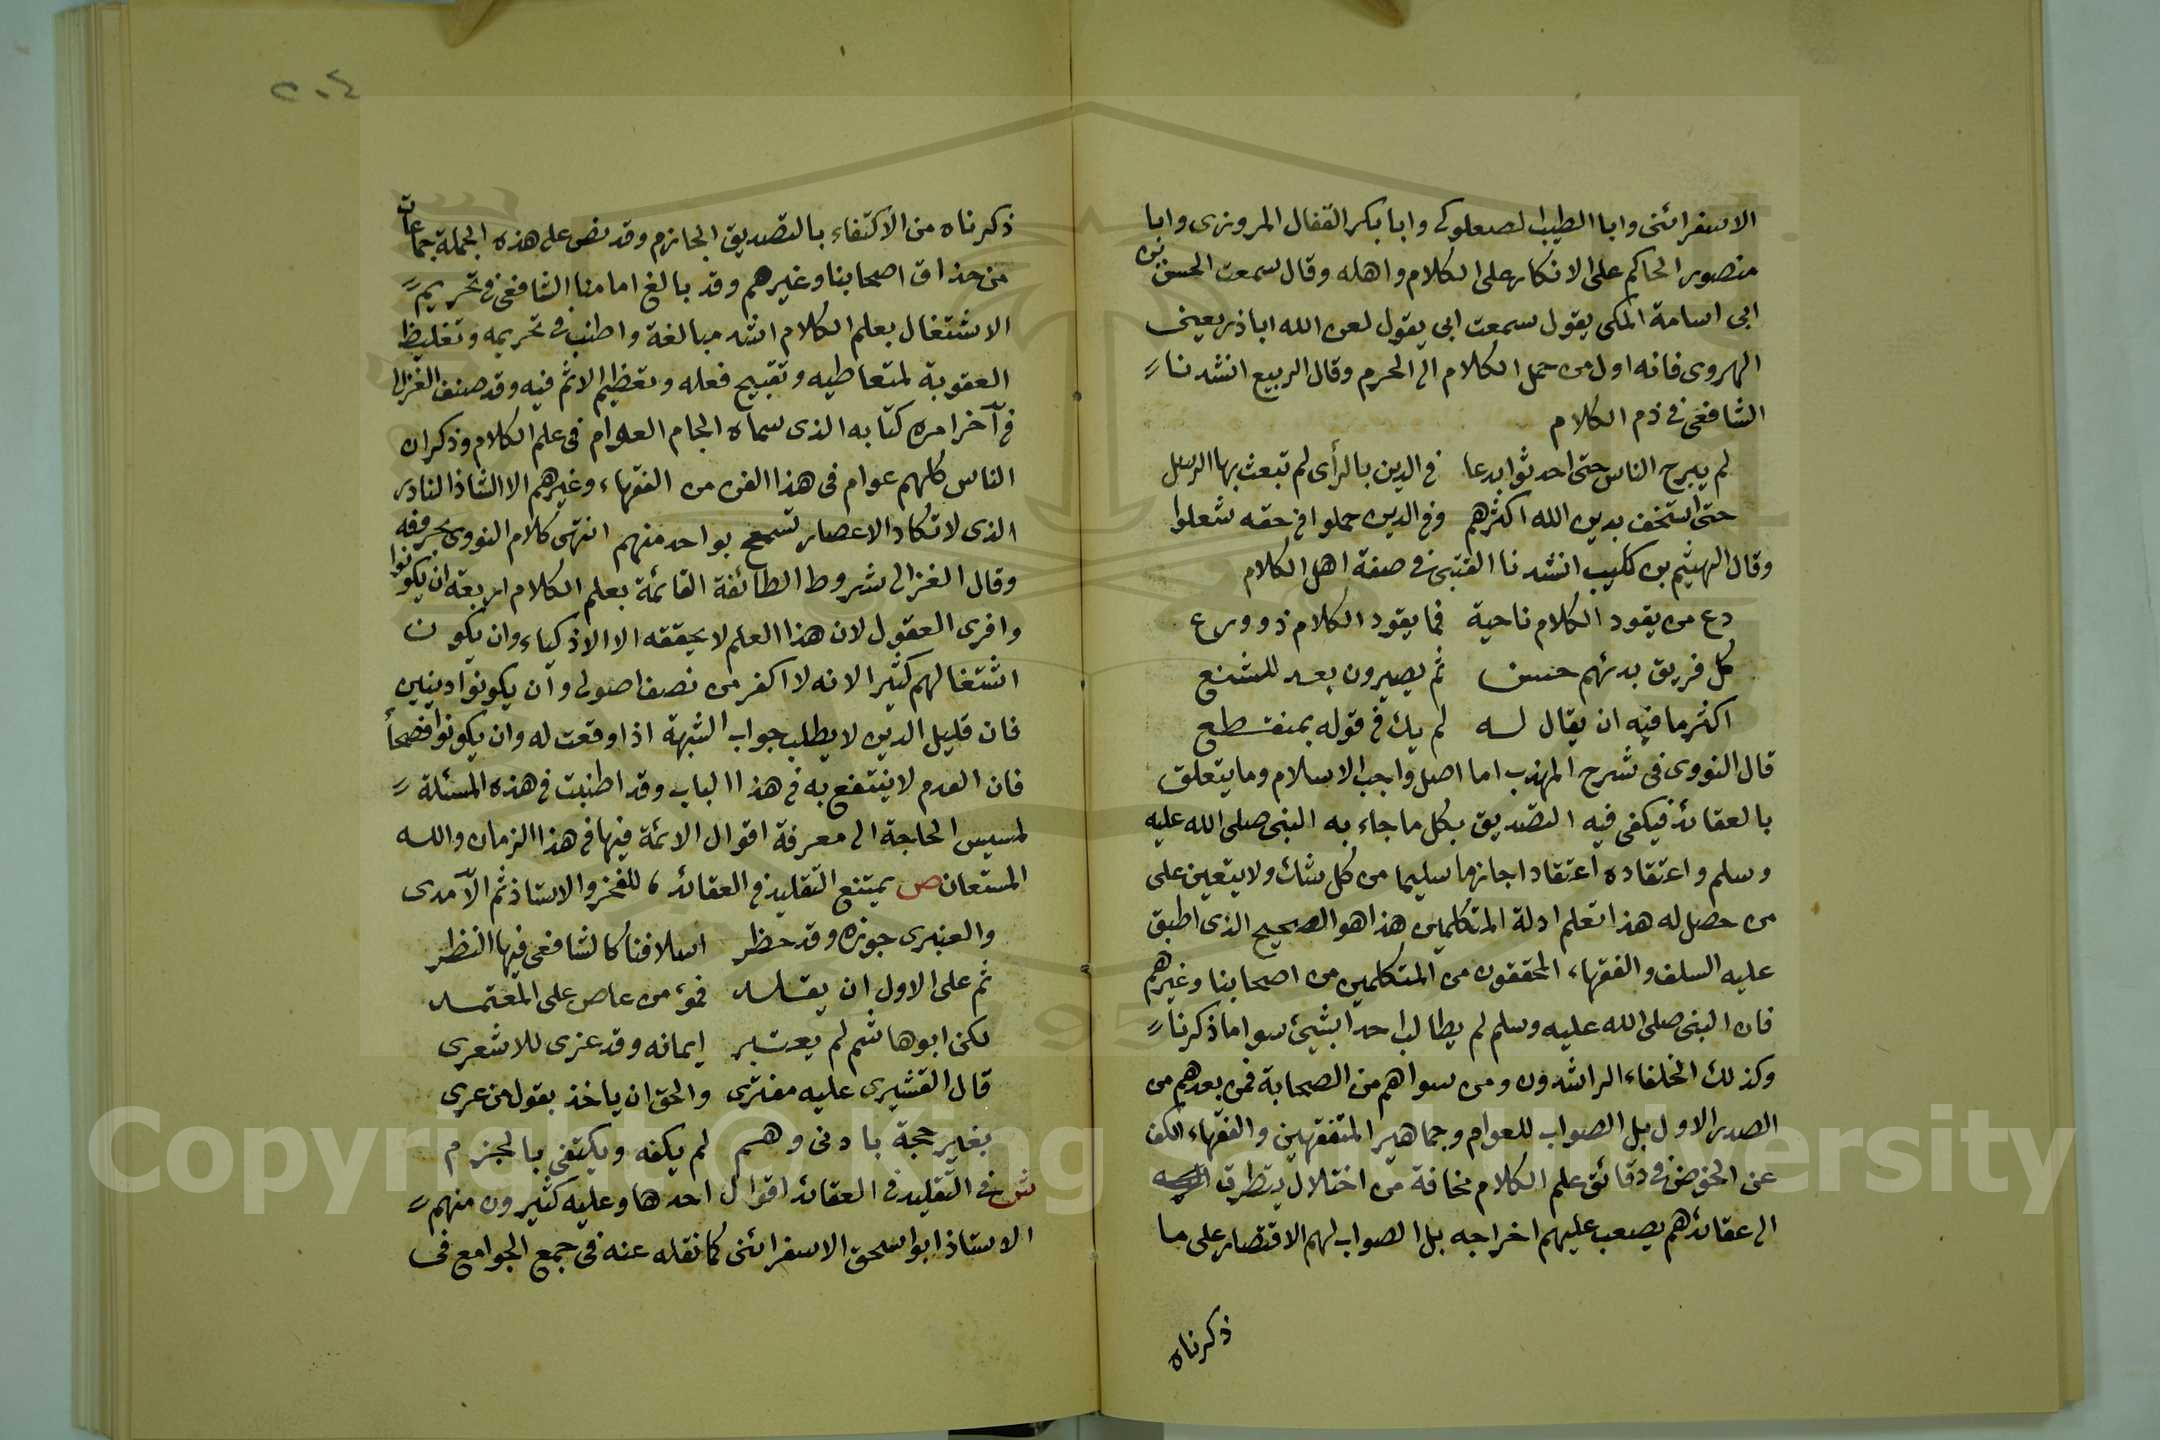 الاسفرائنى وابا الطيب الصعلوكى وابا بكر القفال المروزى وابا
منصور الحاكم على الانكار على الكلام واهله وقال سمعت الحسن بن
ابى اسامة المكى يقول سمعت ابى يقول لعن الله اباذر يعنى
الهروى فانه اول من حمل الكلام الى الحرم وقال الربيع انشدنا
الشافعى فى ذم الكلام
لم يبرح الناس حتى احدثوا بدعا فى الدين بالرأى لم تبعث بها الرسل
حتى استخف بدين الله اكثرهم وفى الدين حملوا فى حقه شغلوا
وقال الهيثم بن كليب انشدنا القتبى فى صفة اهل الكلام
دع من يقود الكلام ناحية فما يقود الكلام ذو ورع
كل فريق بدئهم حسن ثم يصيرون بعد للشنع
اكثر ما فيه ان يقال له لم يك فى قوله بمنقطع
قال النووى فى شرح المهذب اما اصل واجب الاسلام وما يتعلق
بالعقائد فيكفى فيه التصديق بكل ما جاء به النبى صلى الله عليه
وسلم واعتقاده اعتقادا جازما سليما من كل شك ولا يتعين على
من حصل له هذا تعلم ادلة المتكلمين هذا هو الصحيح الذى اطبق
عليه السلف والفقهاء المحققون من المتكلمين من اصحابنا وغيرهم
فان النبى صلى الله عليه وسلم لم يطالب احدا بشيئ سوا ما ذكرنا
وكذلك الخلفاء الراشدون ومن سواهم من الصحابة فمن بعدهم من
الصدر الاول بل الصواب للعوام وجماهير المتفقهين والفقهاء الكف
عن الخوض فى دقائق علم الكلام مخافة من اختلال يتطرق
الى عقائدهم يصعب عليهم اخراجه بل الصواب لهم الاقتصار على ما
ذكرناه
٢٠٤
ذكرناه من الاكتفاء بالتصديق الجازم وقد نص على هذه الجملة جماعات
من حذاق اصحابنا وغيرهم وقد بالغ امامنا الشافعى فى تحريم
الاشتغال بعلم الكلام اشد مبالغة واطنب فى تحريمه وتغليظ
العقوبة لمتعاطيه وتقبيح فعله وتعظيم الاثم فيه وقد صنف الغزالى
فى آخر امره كتابه الذى سماه الجام العوام فى علم الكلام وذكر ان
الناس كلهم عوام فى هذا الفن من الفقهاء وغيرهم الا الشاذ النادر
الذى لا تكاد الاعصار تسمح بواحد منهم انتهى كلام النووى بحروفه
وقال الغزالى شروط الطائفة القائمة بعلم الكلام اربعة ان يكونوا
وافرى العقول لان هذا العلم لا يحققه الا الاذكياء وان يكون
اشتغالهم كثيرا لانه لا اكفر من نصف اصولى وان يكونوا دينين
فان قليل الدين لا يطلب جواب الشبهة اذا وقعت له وان يكونوا فصحاً
فان الفدم لا ينتفع به فى هذا الباب وقد اطنبت فى هذه المسئلة
لمسيس الحاجة الى معرفة اقوال الائمة فيها فى هذا الزمان والله
المستعان ص يمتنع التقليد فى العقائد للفخر والاستاذ ثم الآمدى
والعنبرى جوزه وقد حظر اسلافنا كالشافعى فيها النظر
ثم على الاول ان يقلد فمؤمن عاص على المعتمد
لكن ابو هاشم لم يعتبر ايمانه وقد عزى للاشعرى
قال القشيرى عليه مفترى والحق ان ياخذ بقول من عرى
بغير حجة بادنى وهم لم يكفه ويكتفى بالجزم
ش فى التقليد فى العقائد اقوال احدها وعليه كثيرون منهم
الاستاذ ابو اسحق الاسفرائنى كما نقله عنه فى جمع الجوامع فى
Copyright © King Saud University